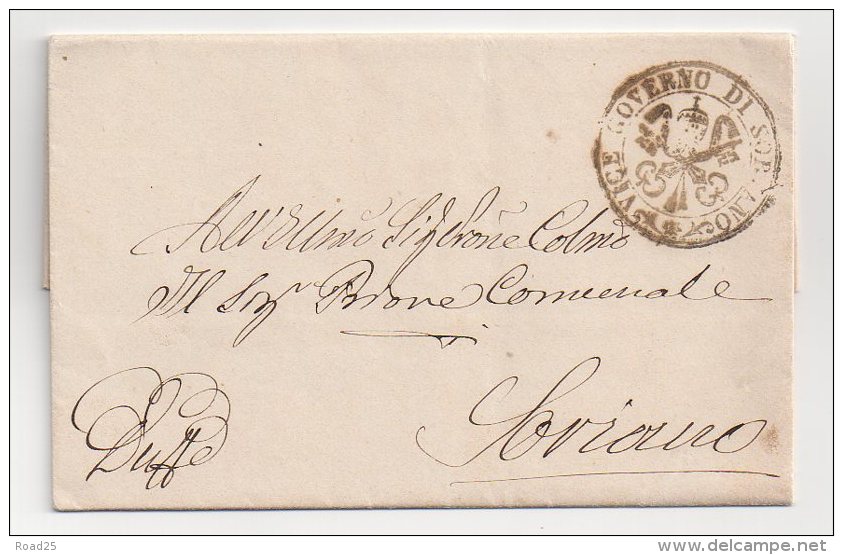 VICE GOVERNO DI SORIANO
All'Illmo Sig Prone Colmo
Il Sigr Priore Comunale
Soriano
Duffo
Road25
www.delcampe.net